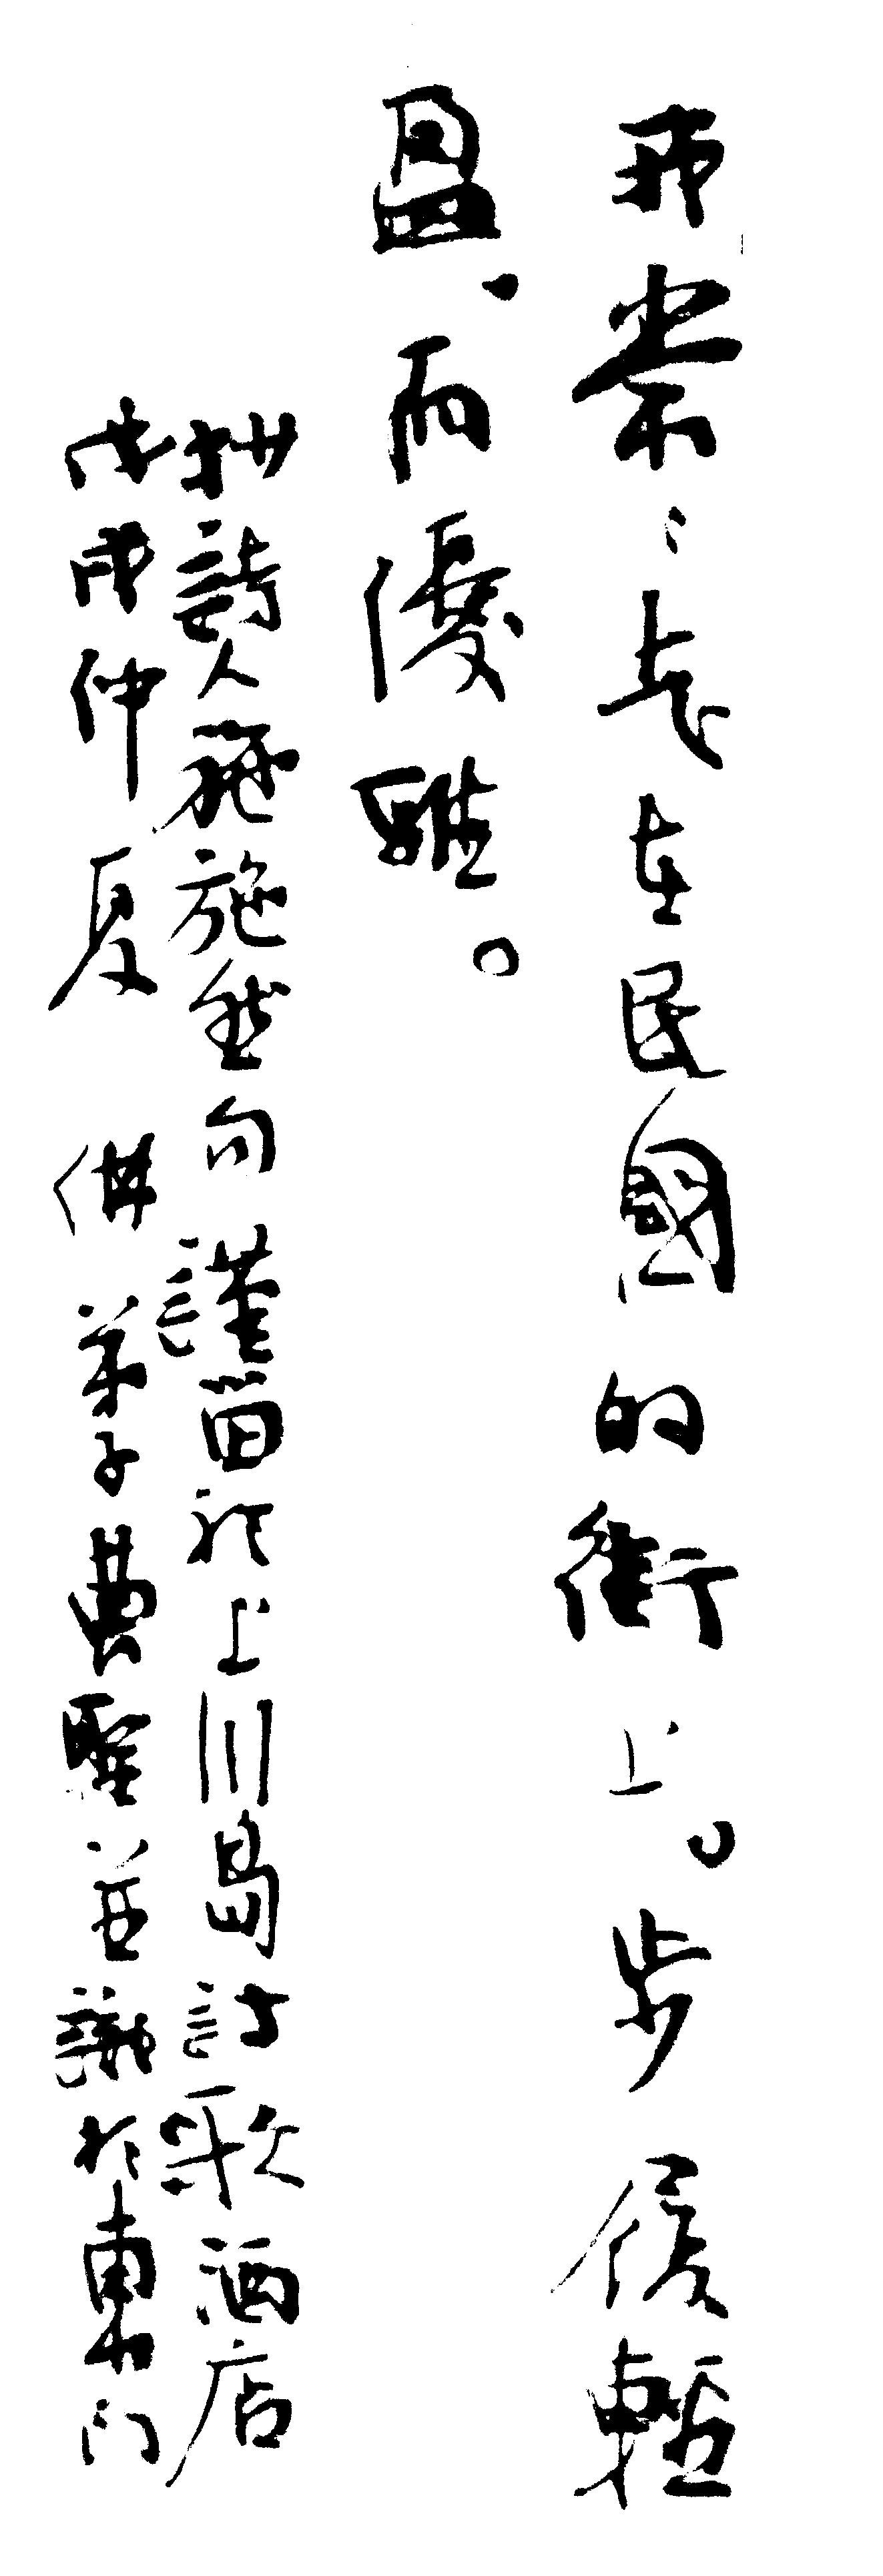 我常〻走在民國的街上。步履輕
盈、而優雅。
抄詩人施施然句 謹留於上川島詩歌酒店
戊戌仲夏 佛弟子聖並識於東門